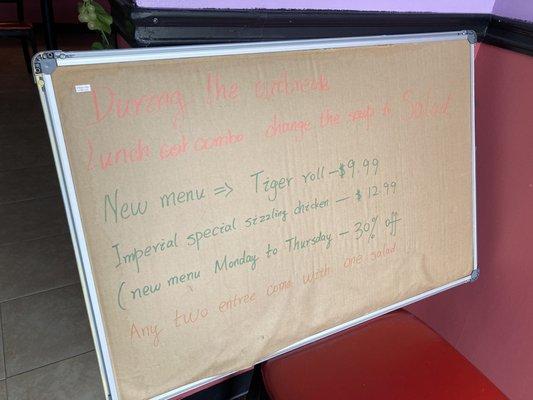 During the outbreak
Lunch combo change the soup to Salad
New menu => Tiger roll - $9.99
Imperial special sizzling chicken - $12.99
(new menu Monday to Thursday - 30% off
Any two entree come with one salad